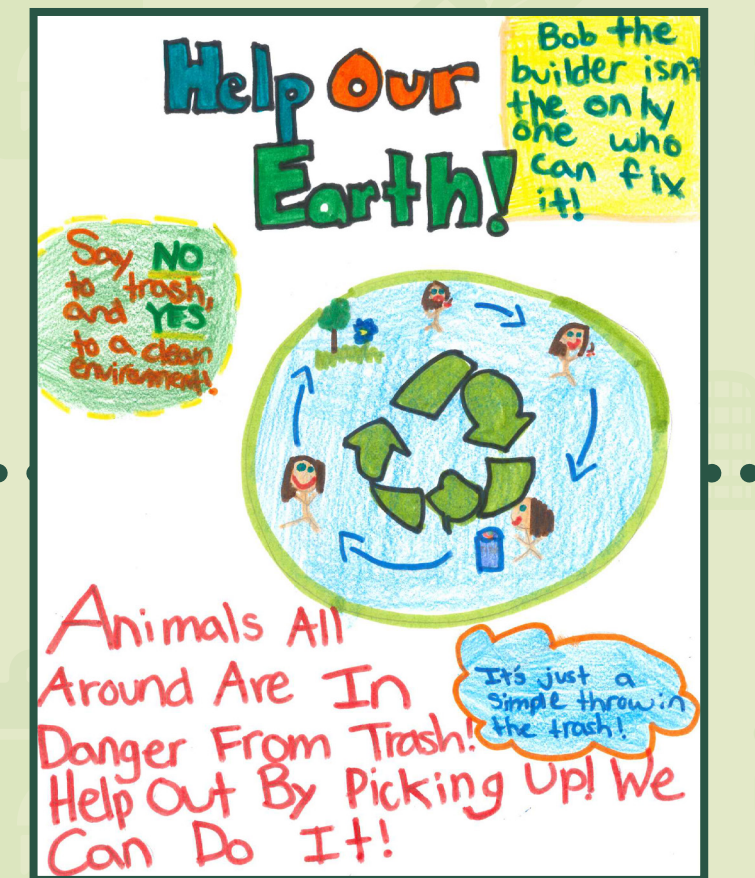 Help Our
Earth!
Bob the
builder isn't
the only
one who
can fix
it!
Say NO
to trash,
and YES
to a clean
environment!
Animals All
Around Are In
Danger From Trash!
Help Out By Picking Up! We
Can Do It!
It's just a
simple throw in
the trash!